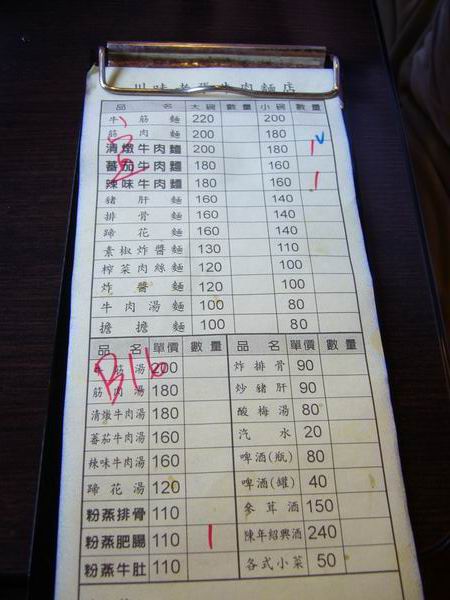 川味老張牛肉麵店
品 名 大碗 數量 小碗 數量
牛筋麵 220 200
筋肉麵 200 180
清燉牛肉麵 200 180 1
蕃茄牛肉麵 180 160
辣味牛肉麵 180 160 1
豬肝麵 160 140
排骨麵 160 140
蹄花麵 160 140
素椒炸醬麵 130 110
榨菜肉絲麵 120 100
炸醬麵 120 100
牛肉湯麵 100 80
擔擔麵 100 80
品 名 單價 數量 品 名 單價 數量
筋湯 200 炸排骨 90
筋肉湯 180 炒豬肝 90
清燉牛肉湯 180 酸梅湯 80
蕃茄牛肉湯 160 汽水 20
辣味牛肉湯 160 啤酒(瓶) 80
蹄花湯 120 啤酒(罐) 40
粉蒸排骨 110 參茸酒 150
粉蒸肥腸 110 1 陳年紹興酒 240
粉蒸牛肚 110 各式小菜 50